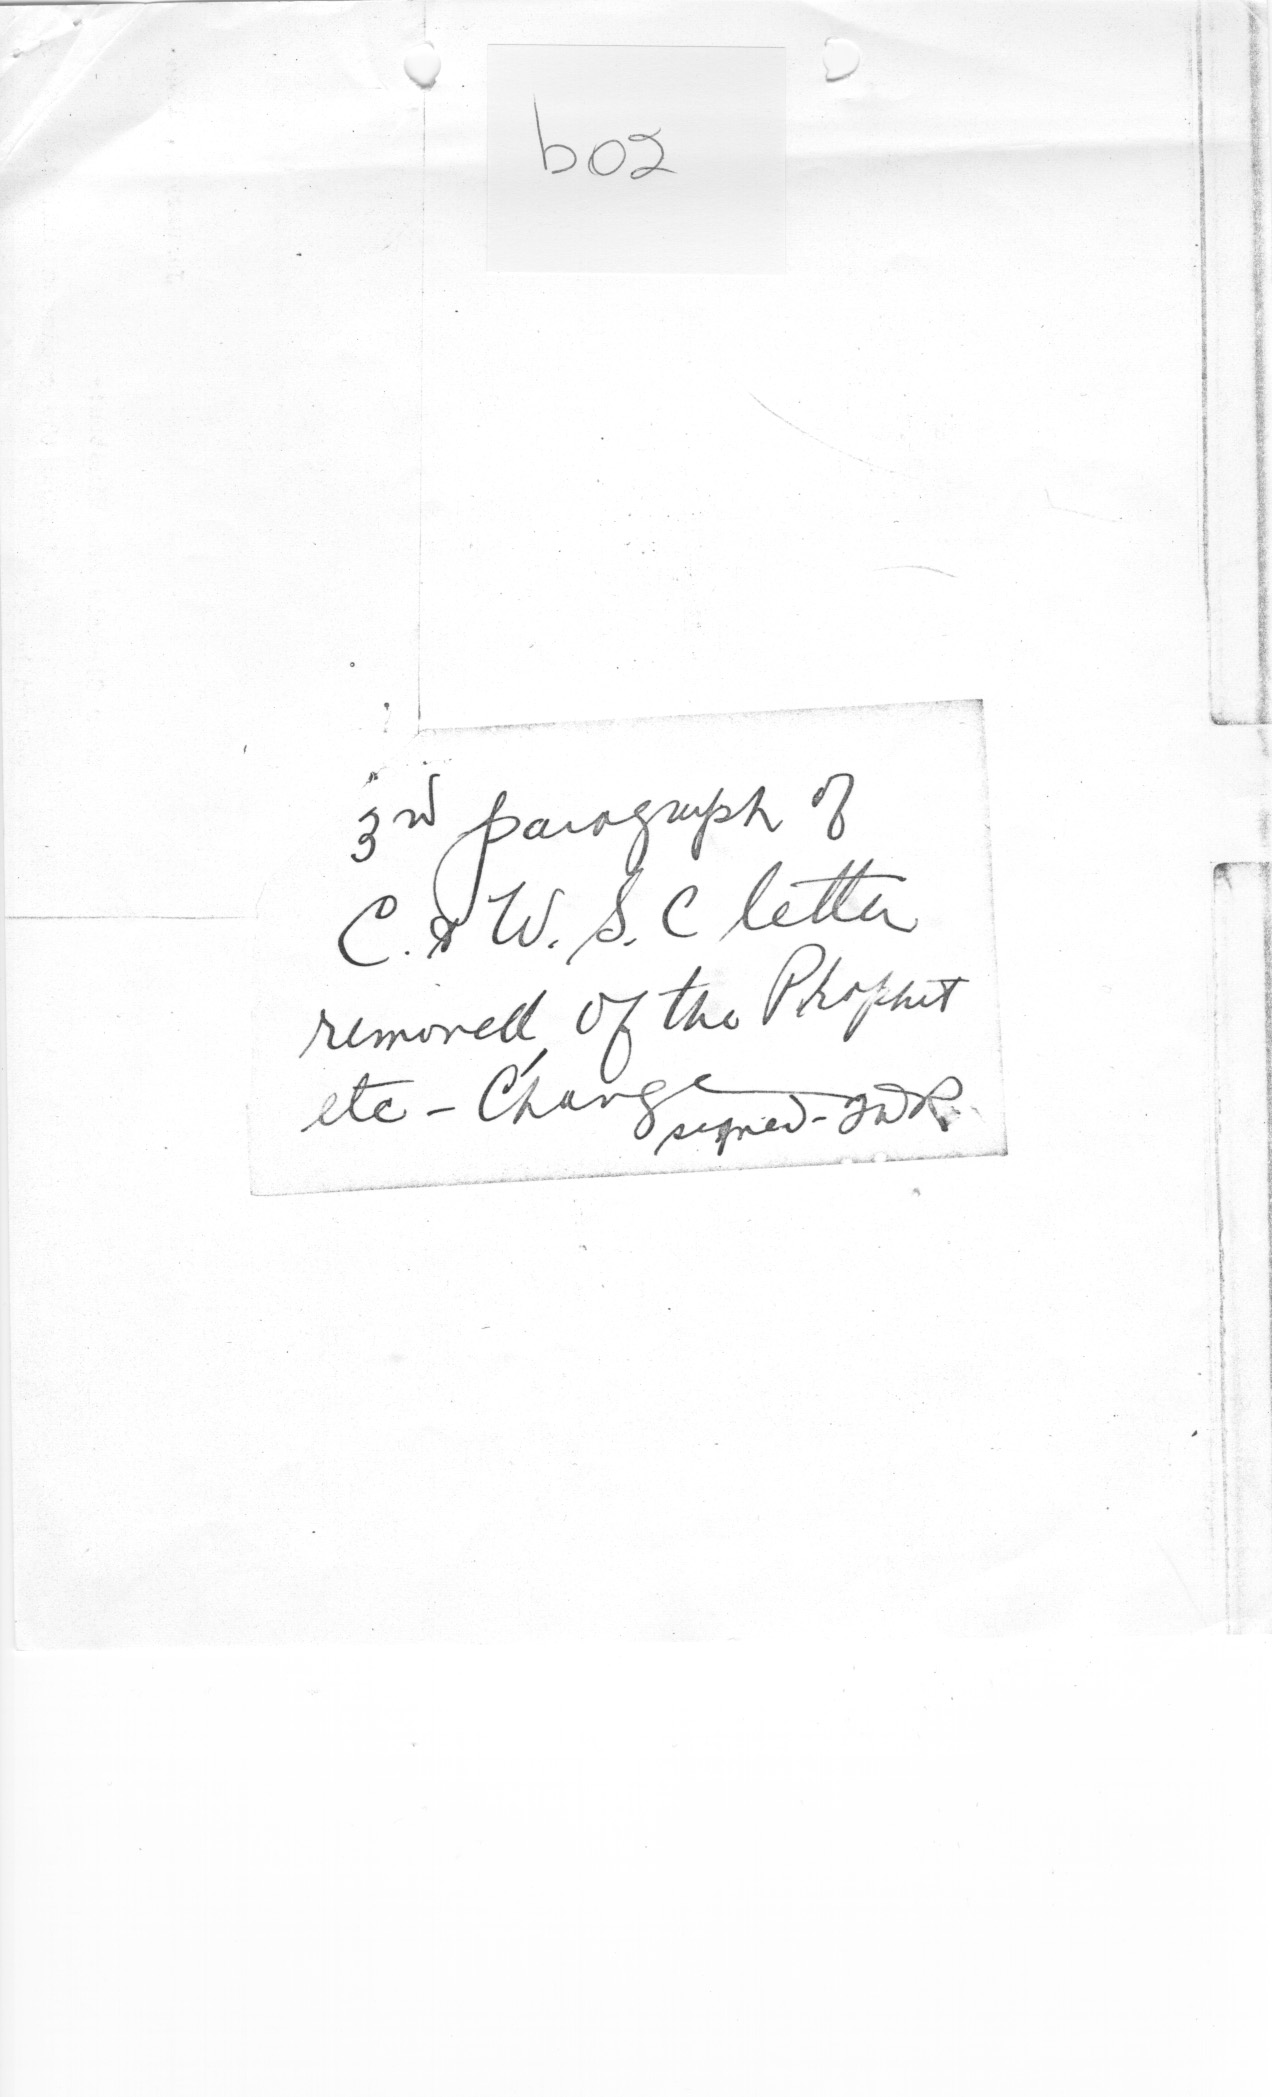 b02
3rd paragraph of
C. & W. S. C letter
removed of the Prophet
etc - Change
signed -